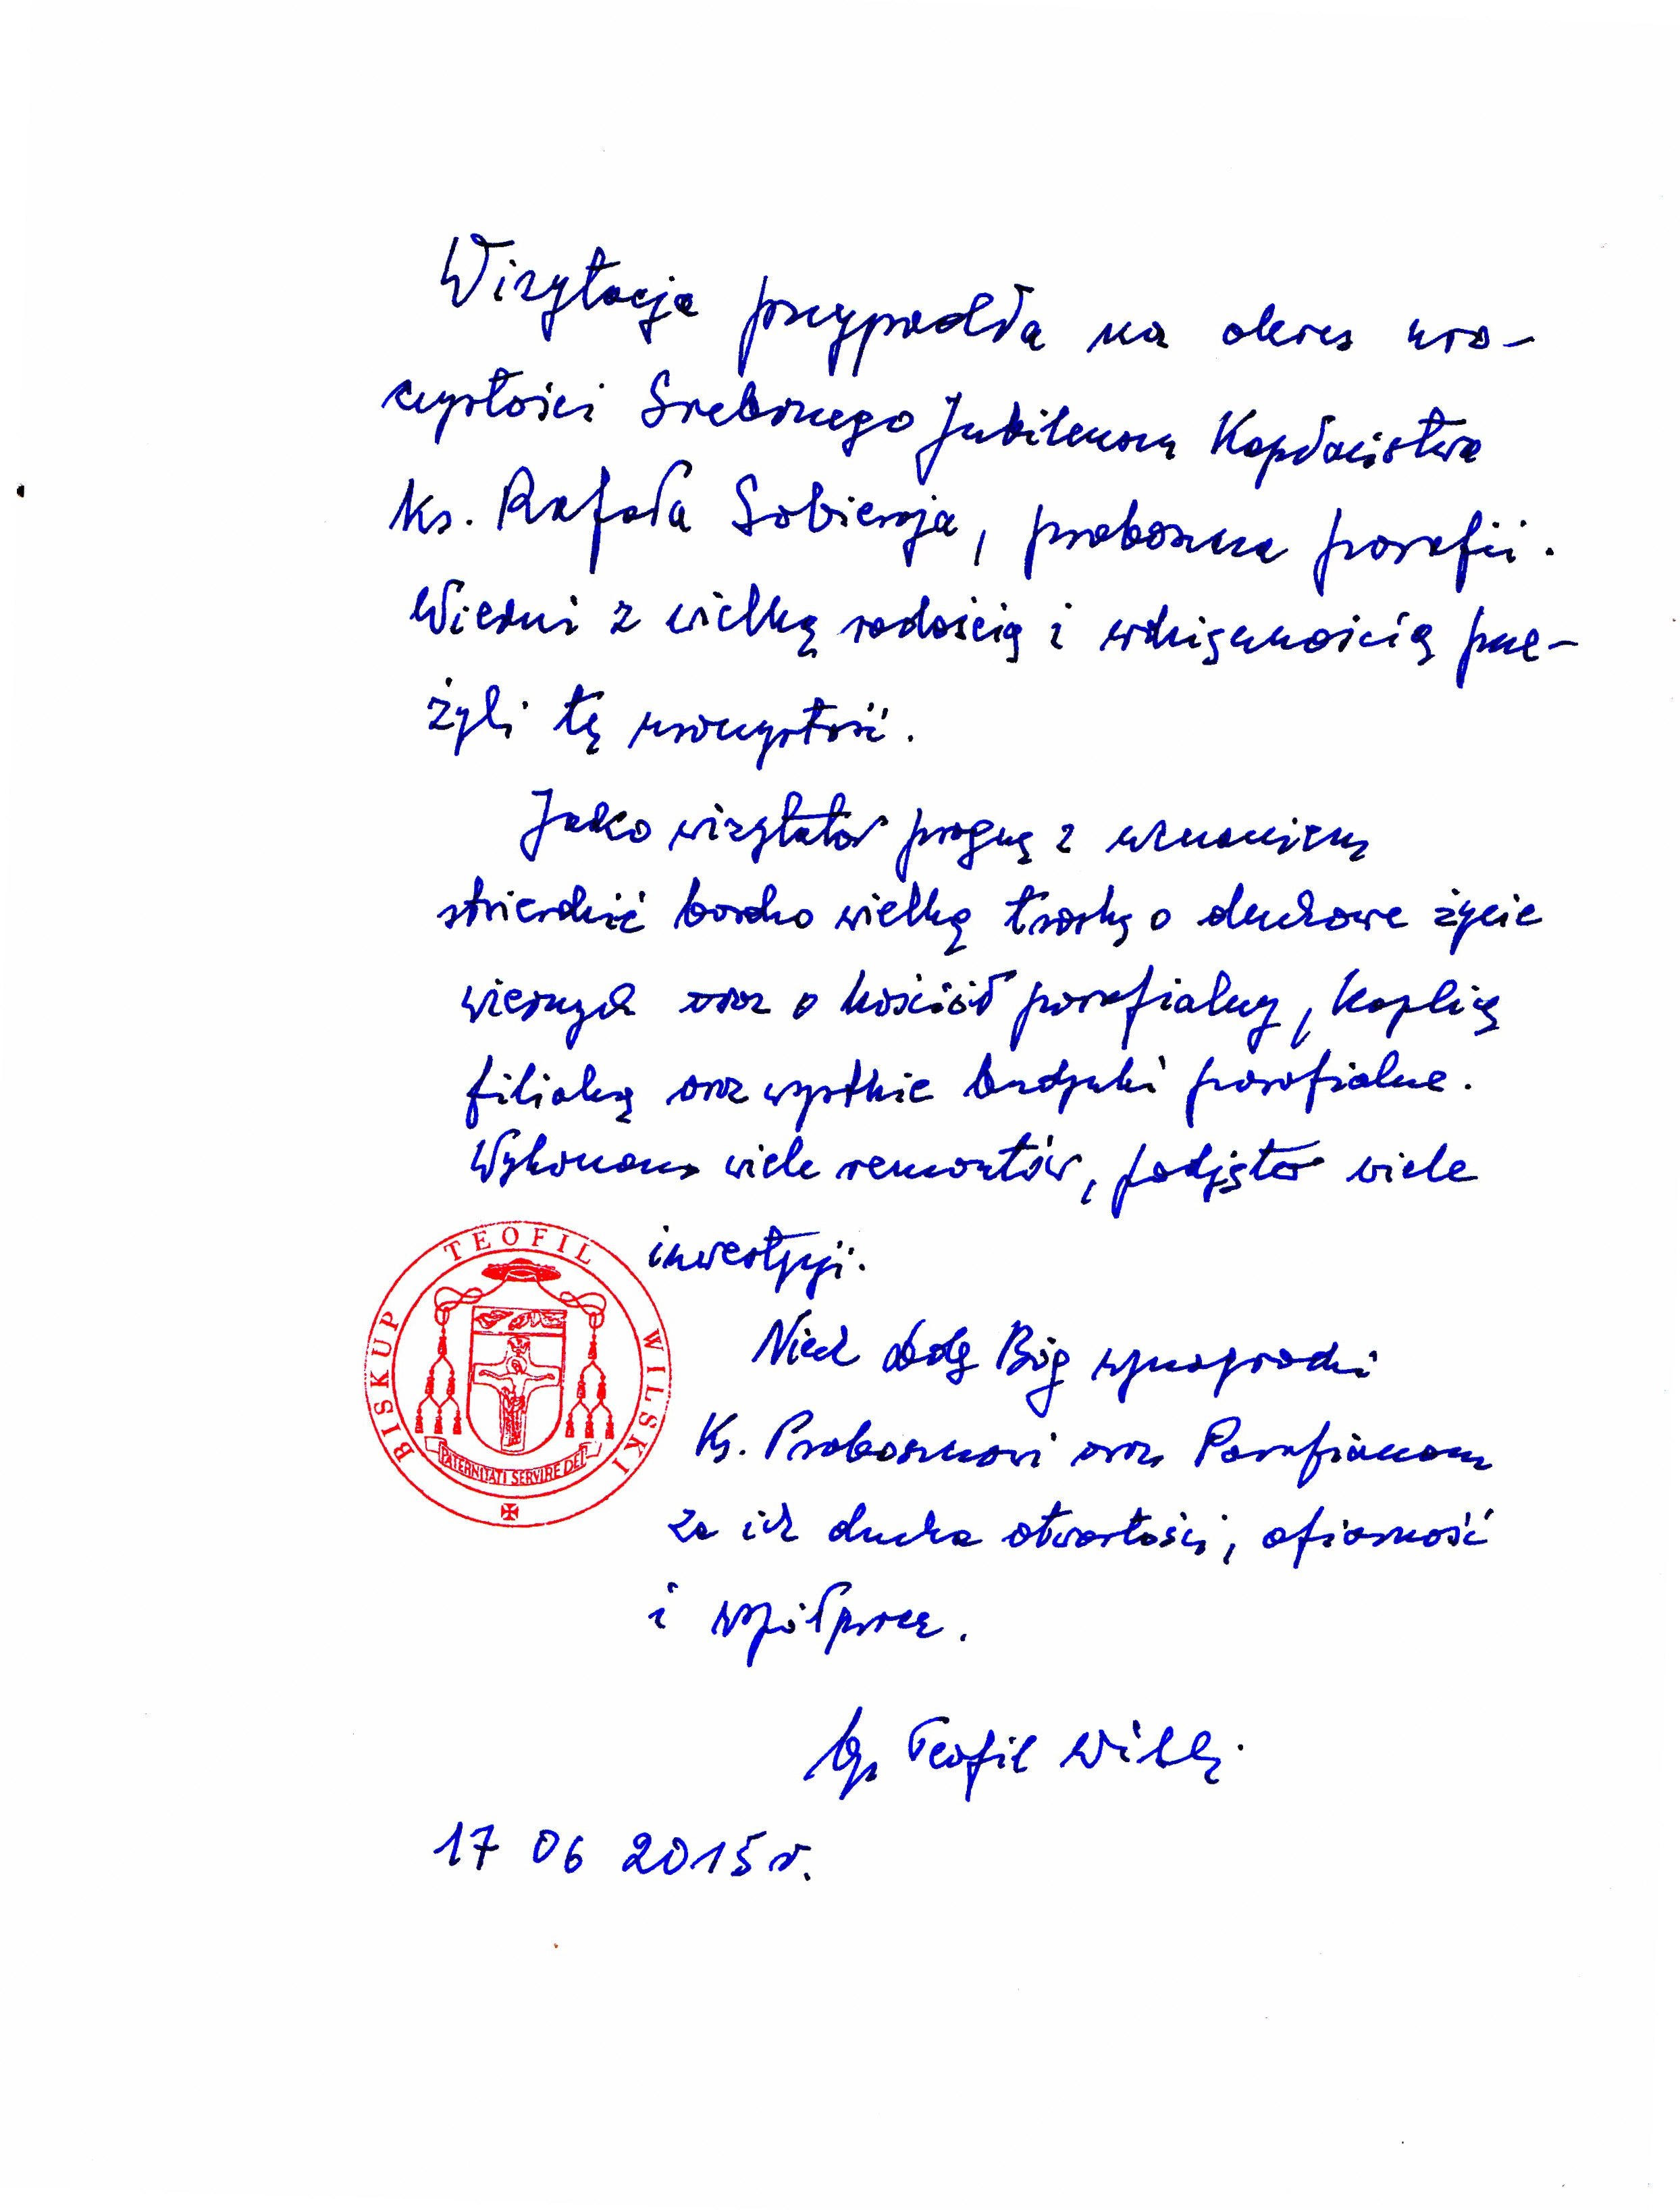 Wizytacja przypadła na okres uro-
czystości Srebrnego Jubileuszu Kapłaństwa
Ks. Rafała Sobieraja, proboszcza parafii.
Wierni z wielką radością i wdzięcznością prze-
żyli tę uroczystość.
Jako wizytator pragnę z uznaniem
stwierdzić bardzo wielką troskę o duchowe życie
wiernych oraz o kościół parafialny, kaplicę
filialną oraz wszystkie budynki parafialne.
Wykonano wiele remontów, podjęto wiele
inwestycji.
Niech dobry Bóg wynagrodzi
Ks. Proboszczowi oraz Parafianom
za ich ducha otwartości, ofiarność
i współpracę.
bp Teofil Wilski
17 06 2015 r.
BISKUP TEOFIL WILSKI
PATERNITATI SERVIRE DEI